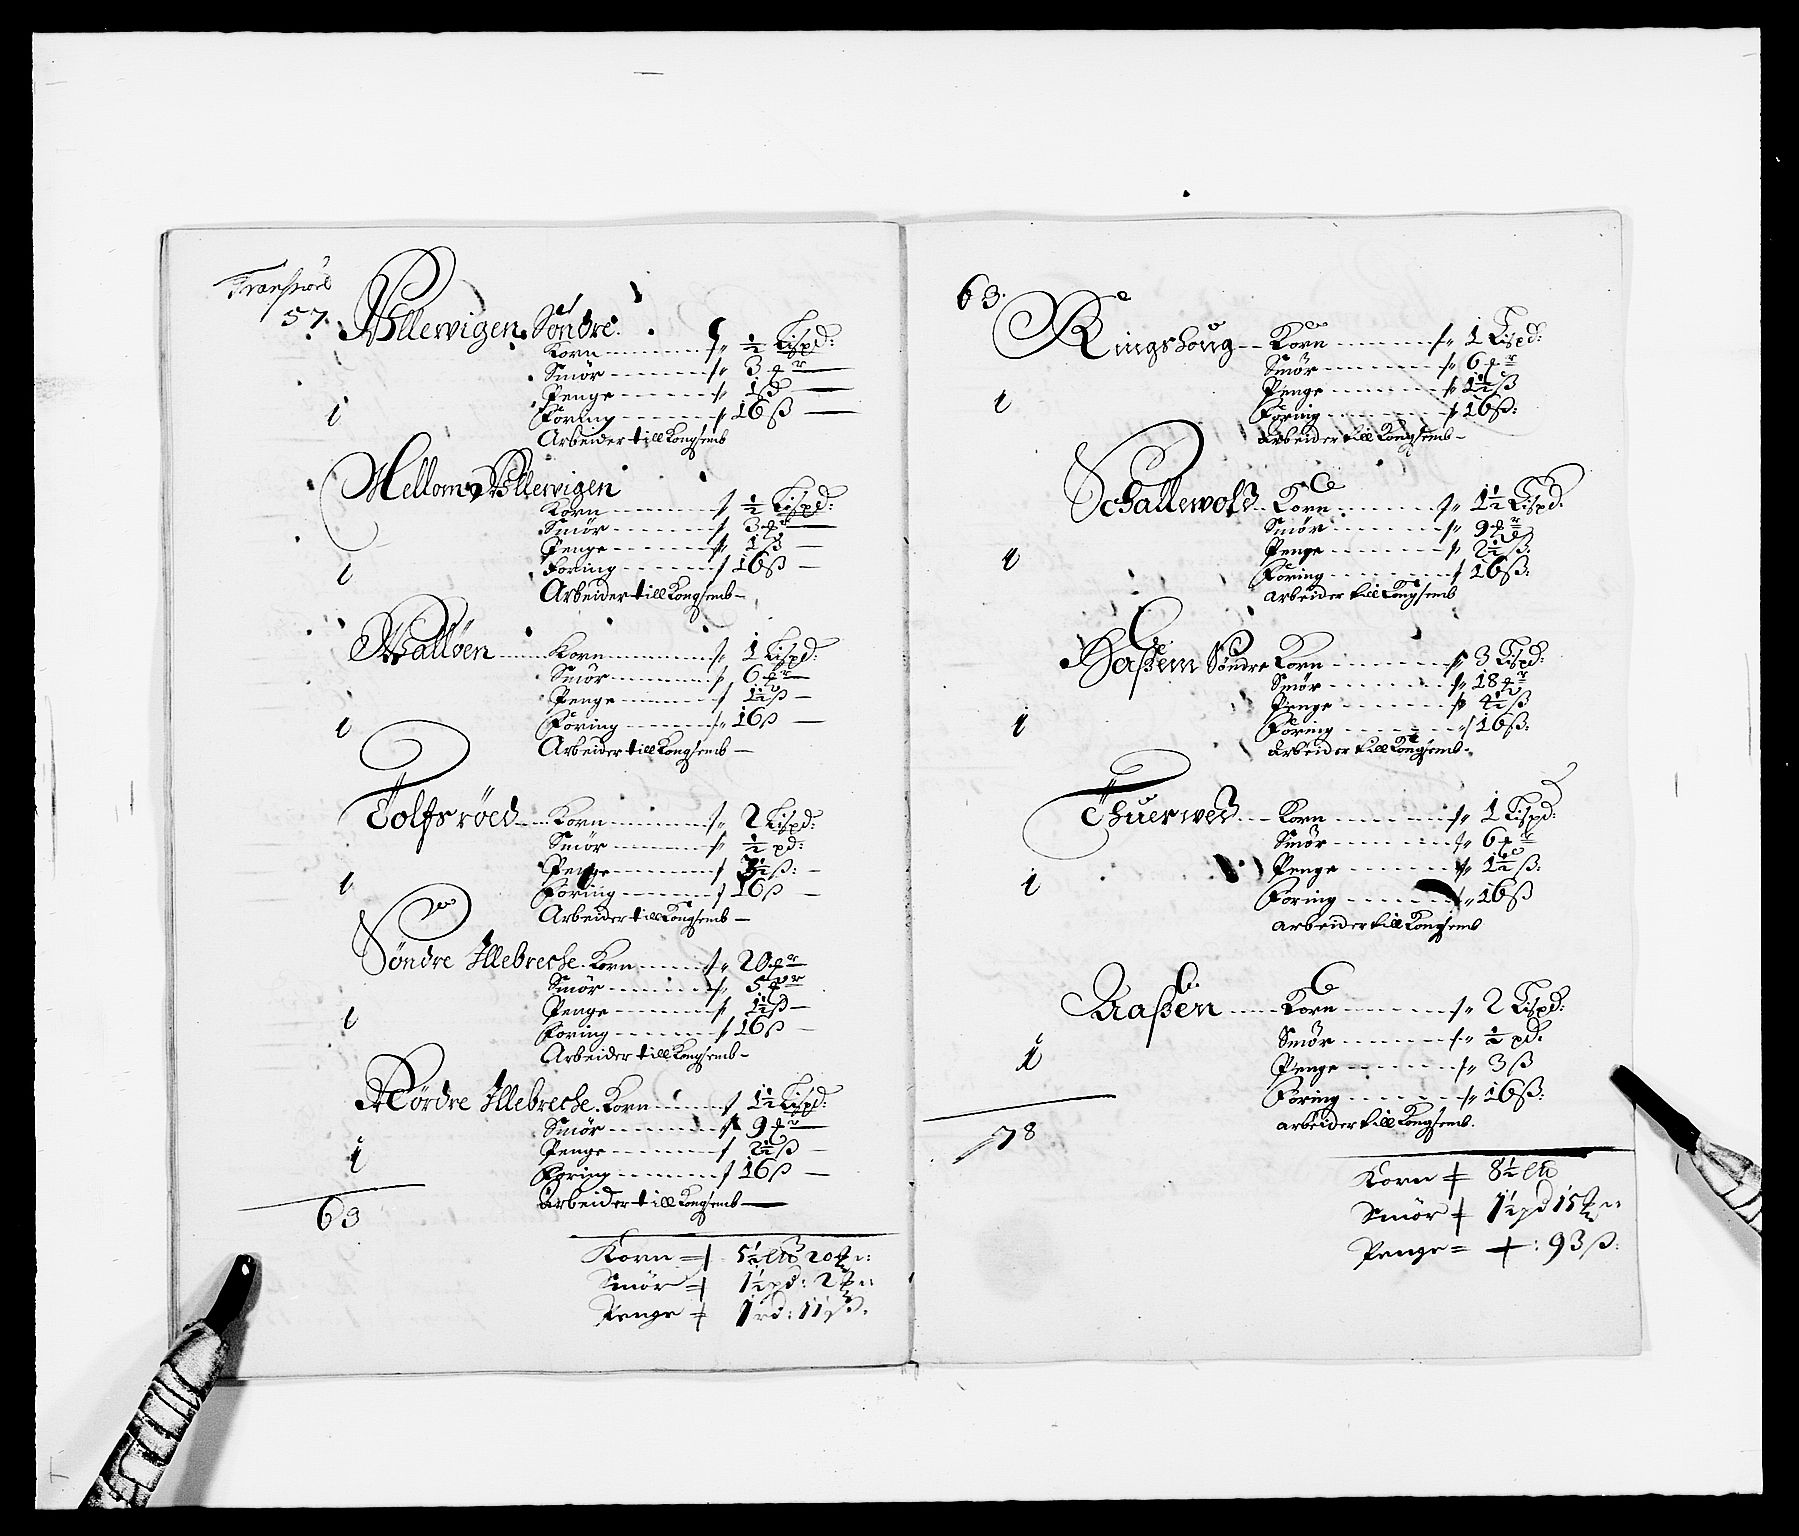 Transport
57.
Ollewigen Söndre.
Korn ----- " ½ Lispd:
Smör ----- " 3 ℔r
Penge ----- " 1 ß
Föring ----- " 16 ß
1
Arbeider till Kongsemb
Mellom Ollewigen
Korn ----- ½ Lispd:
Smör ----- 3 ℔r
Penge ----- " 1 ß
Foring ----- 16 ß
1
Arbeider till Kongsemb
Walløen ----- Korn ----- " 1 Lispd:
Smör ----- " 6 ℔r
Penge ----- 1½ ß
Föring ----- " 16 ß
1
Arbeider till Kongsemb
Tolfsröed ----- Korn ----- " 2 Lispd:
Smör ----- " ½ pd:
Penge ----- 3½ ß:
Föring ----- " 16 ß
1
Arbeider till Kongsemb
Söndre Illebreche. Korn ----- " 20 ℔r
Smör ----- " 5 ℔r
Penge ----- 1½ ß
Foring ----- 16 ß
1
Arbeider till Kongsemb
Nördre Illebreche. Korn ----- 1½ Lispd:
Smör ----- " 9 ℔r
Penge ----- 2½ ß
Föring ----- 16 ß
1
Arbeider till Kongsemb
63
Korn = 5½ 20
Smör = 1½ pd: 2
Penge = 1 rd: 11 ß:
63.
Ringshoug ----- Korn ----- " 1 Lispd:
Smör ----- " 6 ℔r
Penge ----- " 1½ ß
Föring ----- " 16 ß:
1
Arbeider till Kongsemb
Schallewold ----- Korn ----- " 1½ Lispd:
Smör ----- " 9 ℔r
Penge ----- " 2½ ß:
Föring ----- 16 ß:
1
Arbeider till Kongsemb
Basßem Söndre Korn ----- " 3 Lispd:
Smör ----- " 18 ℔r
Penge ----- " 4½ ß
Föring ----- " 16 ß:
1
Arbeider till Kongsemb
Thuerwed ----- Korn ----- " 1 Lispd:
Smör ----- " 6 ℔r
Penge ----- " 1½ ß:
Föring ----- " 16 ß
1
arbeider till Kongsemb
Aaßen ----- Korn ----- " 2 Lispd:
Smör ----- " ½ pd.
Penge ----- " 3 ß
Föring ----- " 16 ß:
1
arbeider till Kongsemb.
78
Korn = 8½
Smör = 1½ pd 15
Penge = : 93 ß: